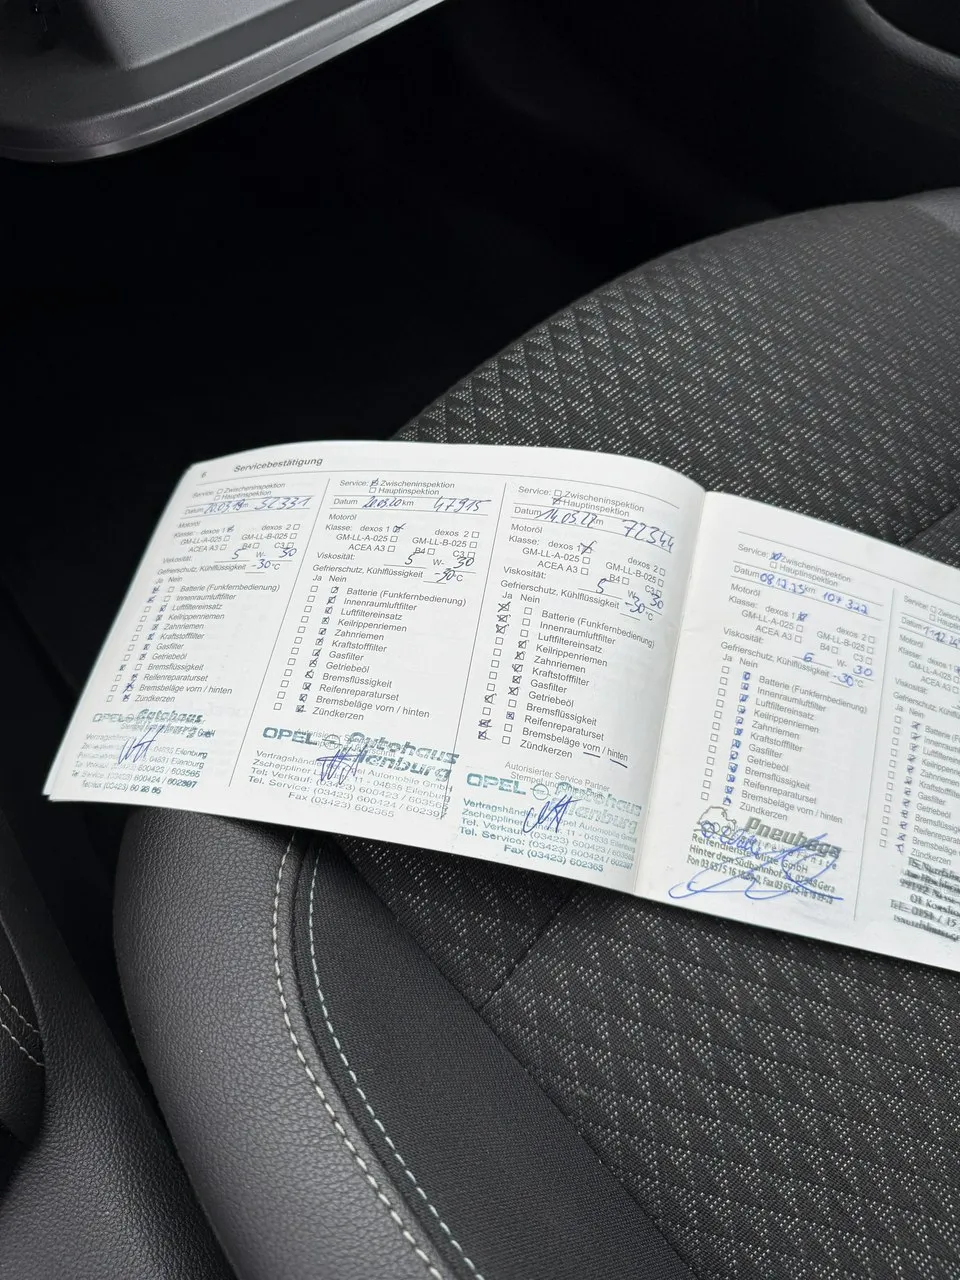 6 Servicebestätigung
Service: Zwischeninspektion
Hauptinspektion
Datum 20.03.19 km 32331
Motoröl
Klasse: dexos 1 dexos 2
GM-LL-A-025 GM-LL-B-025
ACEA A3 B4 C3
Viskosität: 5 W- 30
Gefrierschutz, Kühlflüssigkeit -30 °C
Ja Nein
Batterie (Funkfernbedienung)
Innenraumluftfilter
Luftfiltereinsatz
Keilrippenriemen
Zahnriemen
Kraftstofffilter
Gasfilter
Getriebeöl
Bremsflüssigkeit
Reifenreparaturset
Bremsbeläge vorn / hinten
Zündkerzen
OPEL Autohaus
Eilenburg GmbH
04838 Eilenburg
Tel. Verkauf: (03423) 600424 / 603565
Service: Zwischeninspektion
Hauptinspektion
Datum 20.03.20 km 47915
Motoröl
Klasse: dexos 1 dexos 2
GM-LL-A-025 GM-LL-B-025
ACEA A3 B4 C3
Viskosität: 5 W- 30
Gefrierschutz, Kühlflüssigkeit -30 °C
Ja Nein
Batterie (Funkfernbedienung)
Innenraumluftfilter
Luftfiltereinsatz
Keilrippenriemen
Zahnriemen
Kraftstofffilter
Gasfilter
Getriebeöl
Bremsflüssigkeit
Reifenreparaturset
Bremsbeläge vorn / hinten
Zündkerzen
OPEL Autohaus
Eilenburg
Vertragshändler Opel Automobile GmbH
Zscheppliner 11 - 04838 Eilenburg
Tel. Verkauf: (03423) 600424 / 603565
Tel. Service: (03423) 600424 / 602397
Fax (03423) 602365
Service: Zwischeninspektion
Hauptinspektion
Datum 14.03.22 km 72344
Motoröl
Klasse: dexos 1 dexos 2
GM-LL-A-025 GM-LL-B-025
ACEA A3 B4 C3
Viskosität: 5 W- 30
Gefrierschutz, Kühlflüssigkeit -30 °C
Ja Nein
Batterie (Funkfernbedienung)
Innenraumluftfilter
Luftfiltereinsatz
Keilrippenriemen
Zahnriemen
Kraftstofffilter
Gasfilter
Getriebeöl
Bremsflüssigkeit
Reifenreparaturset
Bremsbeläge vorn / hinten
Zündkerzen
Autorisierter Service Partner
OPEL Autohaus
Eilenburg
Vertragshändler Opel Automobile
Zscheppliner 11 - 04838 Eilenburg
Tel. Verkauf: (03423) 600424 / 603565
Tel. Service: (03423) 600424 / 602397
Fax (03423) 602365
Service: Zwischeninspektion
Hauptinspektion
Datum km 107 322
Motoröl
Klasse: dexos 1 dexos 2
GM-LL-A-025 GM-LL-B-025
ACEA A3 B4 C3
Viskosität: W- 30
Gefrierschutz, Kühlflüssigkeit -30 °C
Ja Nein
Batterie (Funkfernbedienung)
Innenraumluftfilter
Luftfiltereinsatz
Keilrippenriemen
Zahnriemen
Kraftstofffilter
Gasfilter
Getriebeöl
Bremsflüssigkeit
Reifenreparaturset
Bremsbeläge vorn / hinten
Zündkerzen
Pneuhage
Reifendienste Mitte GmbH
Hinter dem Südbahnhof Gera
Service:
Datum
Motoröl
Klasse: dexos 1
GM-LL-A-025
ACEA A3
Viskosität:
Gefrierschutz,
Ja Nein